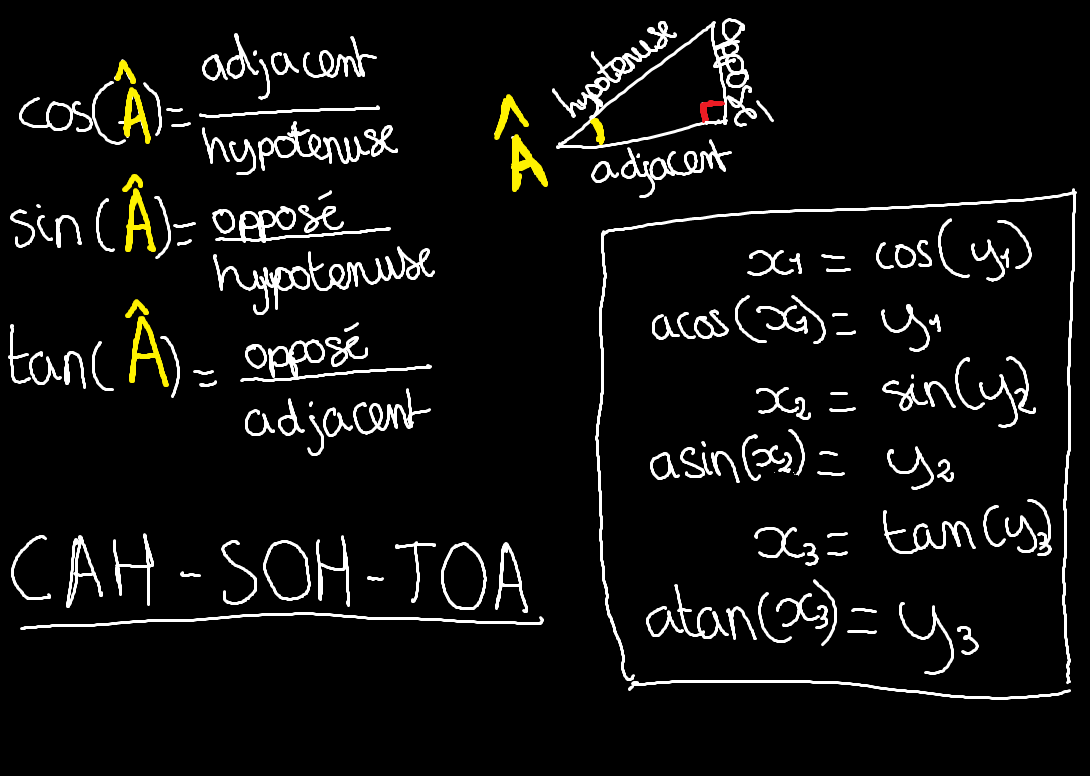 cos(Â) = adjacent / hypotenuse
sin(Â) = opposé / hypotenuse
tan(Â) = opposé / adjacent
CAH - SOH - TOA
Â
hypotenuse
opposé
adjacent
x1 = cos(y1)
acos(x1) = y1
x2 = sin(y2
asin(x2) = y2
x3 = tan(y3)
atan(x3) = y3